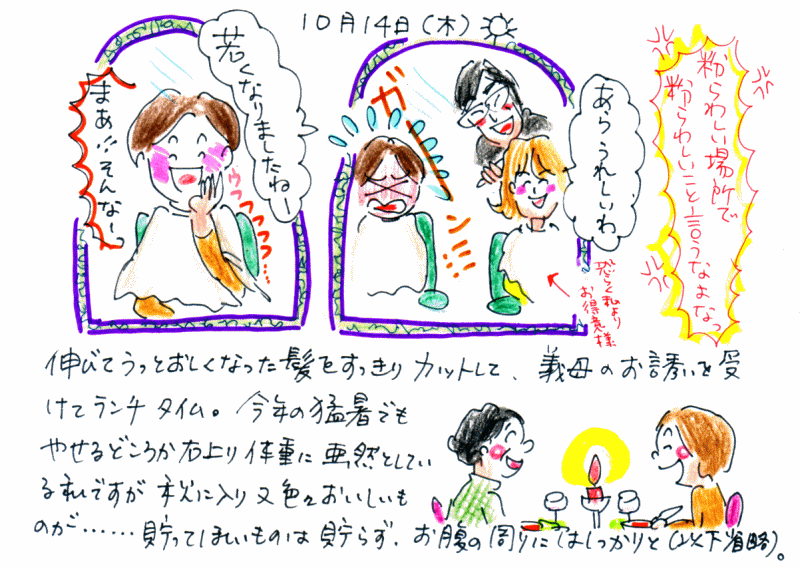 10月14日(木)
若くなりましたねー
まあ!!そんなー
ウフフフフフ…
ガーン!!…
あら うれしいわ
恐らく私より
お得意様
粉らわしい場所で
粉らわしいこと言うなよなっ
伸びてうっとおしくなった髪をすっきりカットして、義母のお誘いを受
けてランチタイム。今年の猛暑でも
やせるどころか右上り体重に亜然としてい
る私ですが 秋に入り又色々おいしいも
のが……貯ってほしいものは貯らず、お腹の周りにはしっかりと(以下省略)。